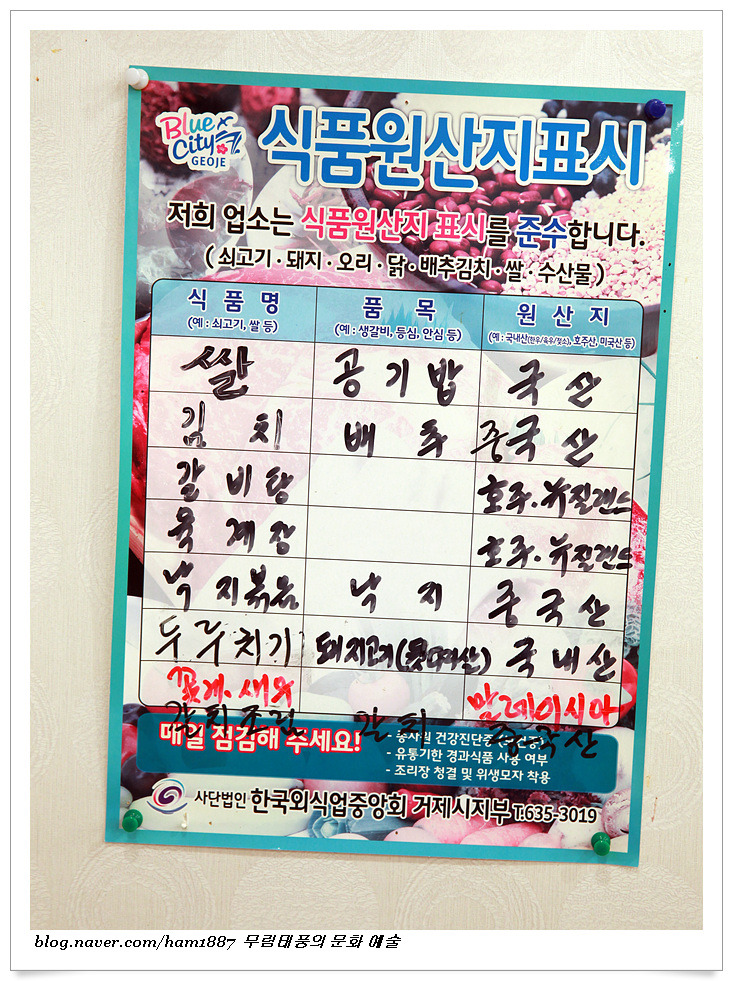 Blue City GEOJE
식품원산지표시
저희 업소는 식품원산지 표시를 준수합니다.
( 쇠고기 · 돼지 · 오리 · 닭 · 배추김치 · 쌀 · 수산물 )
식 품 명 품 목 원 산 지
(예 : 쇠고기, 쌀 등) (예 : 생갈비, 등심, 안심 등) (예 : 국내산(한우/육우/젖소), 호주산, 미국산 등)
쌀 공기밥 국산
김치 배추 중국산
갈비탕 호주.뉴질랜드
육계장 호주.뉴질랜드
낙지볶음 낙지 중국산
두루치기 돼지고기( 국내산
꽃게.새우 말레이시아
갈치조림 갈치 중국산
매일 점검해 주세요!
- 종사원 건강진단증
- 유통기한 경과식품 사용 여부
- 조리장 청결 및 위생모자 착용
사단법인 한국외식업중앙회 거제시지부 T.635-3019
blog.naver.com/ham1887 무림태풍의 문화 예술